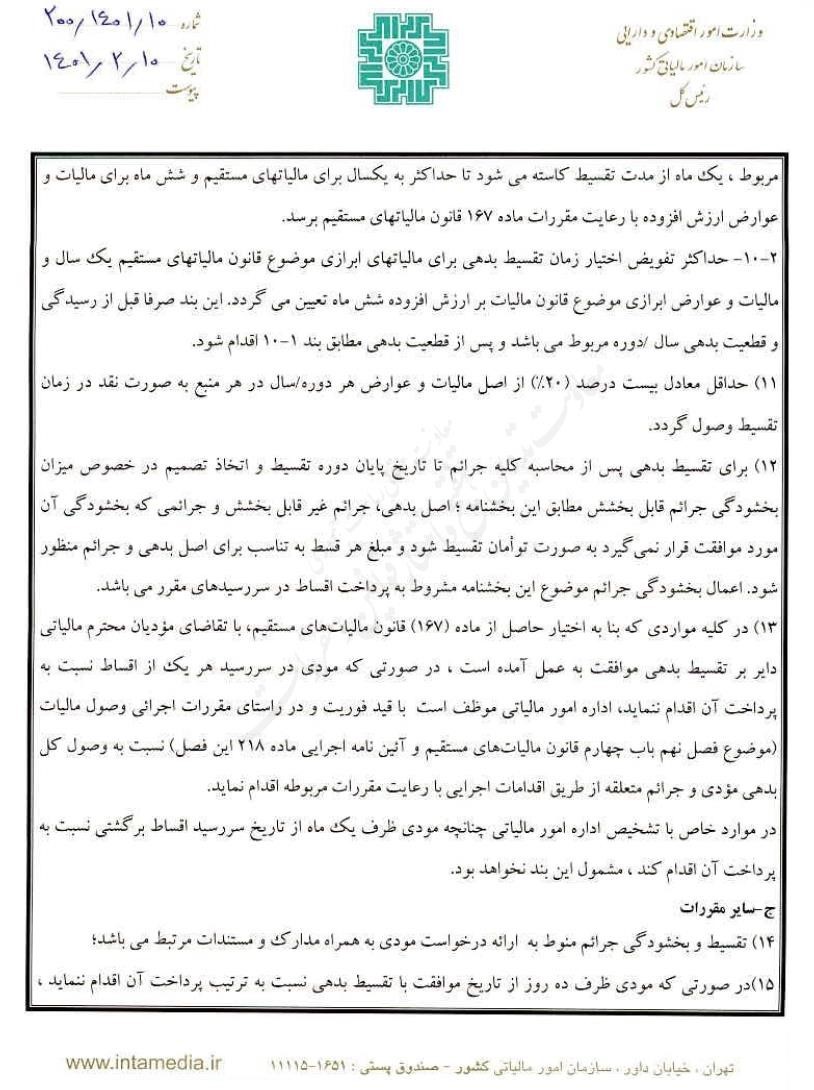 وزارت امور اقتصادی و دارایی
سازمان امور مالیاتی کشور
رئیس کل
شماره ۲۰۰/۱۴۰۱/۱۰
تاریخ ۱۴۰۱/۲/۱۰
پیوست
مربوط ، یک ماه از مدت تقسیط کاسته می شود تا حداکثر به یکسال برای مالیاتهای مستقیم و شش ماه برای مالیات و
عوارض ارزش افزوده با رعایت مقررات ماده ۱۶۷ قانون مالیاتهای مستقیم برسد.
۱۰-۲- حداکثر تفویض اختیار زمان تقسیط بدهی برای مالیاتهای ابرازی موضوع قانون مالیاتهای مستقیم یک سال و
مالیات و عوارض ابرازی موضوع قانون مالیات بر ارزش افزوده شش ماه تعیین می گردد. این بند صرفا قبل از رسیدگی
و قطعیت بدهی سال /دوره مربوط می باشد و پس از قطعیت بدهی مطابق بند ۱-۱۰ اقدام شود.
۱۱) حداقل معادل بیست درصد (۲۰٪) از اصل مالیات و عوارض هر دوره/سال در هر منبع به صورت نقد در زمان
تقسیط وصول گردد.
۱۲) برای تقسیط بدهی پس از محاسبه کلیه جرائم تا تاریخ پایان دوره تقسیط و اتخاذ تصمیم در خصوص میزان
بخشودگی جرائم قابل بخشش مطابق این بخشنامه ؛ اصل بدهی، جرائم غیر قابل بخشش و جرائمی که بخشودگی آن
مورد موافقت قرار نمی‌گیرد به صورت توأمان تقسیط شود و مبلغ هر قسط به تناسب برای اصل بدهی و جرائم منظور
شود. اعمال بخشودگی جرائم موضوع این بخشنامه مشروط به پرداخت اقساط در سررسیدهای مقرر می باشد.
۱۳) در کلیه مواردی که بنا به اختیار حاصل از ماده (۱۶۷) قانون مالیات‌های مستقیم، با تقاضای مؤدیان محترم مالیاتی
دایر بر تقسیط بدهی موافقت به عمل آمده است ، در صورتی که مودی در سررسید هر یک از اقساط نسبت به
پرداخت آن اقدام ننماید، اداره امور مالیاتی موظف است با قید فوریت و در راستای مقررات اجرائی وصول مالیات
(موضوع فصل نهم باب چهارم قانون مالیات‌های مستقیم و آئین نامه اجرایی ماده ۲۱۸ این فصل) نسبت به وصول کل
بدهی مؤدی و جرائم متعلقه از طریق اقدامات اجرایی با رعایت مقررات مربوطه اقدام نماید.
در موارد خاص با تشخیص اداره امور مالیاتی چنانچه مودی ظرف یک ماه از تاریخ سررسید اقساط برگشتی نسبت به
پرداخت آن اقدام کند ، مشمول این بند نخواهد بود.
ج-سایر مقررات
۱۴) تقسیط و بخشودگی جرائم منوط به ارائه درخواست مودی به همراه مدارک و مستندات مرتبط می باشد؛
۱۵)در صورتی که مودی ظرف ده روز از تاریخ موافقت با تقسیط بدهی نسبت به ترتیب پرداخت آن اقدام ننماید ،
تهران ، خیابان داور ، سازمان امور مالیاتی کشور - صندوق پستی : ۱۶۵۱-۱۱۱۱۵
www.intamedia.ir